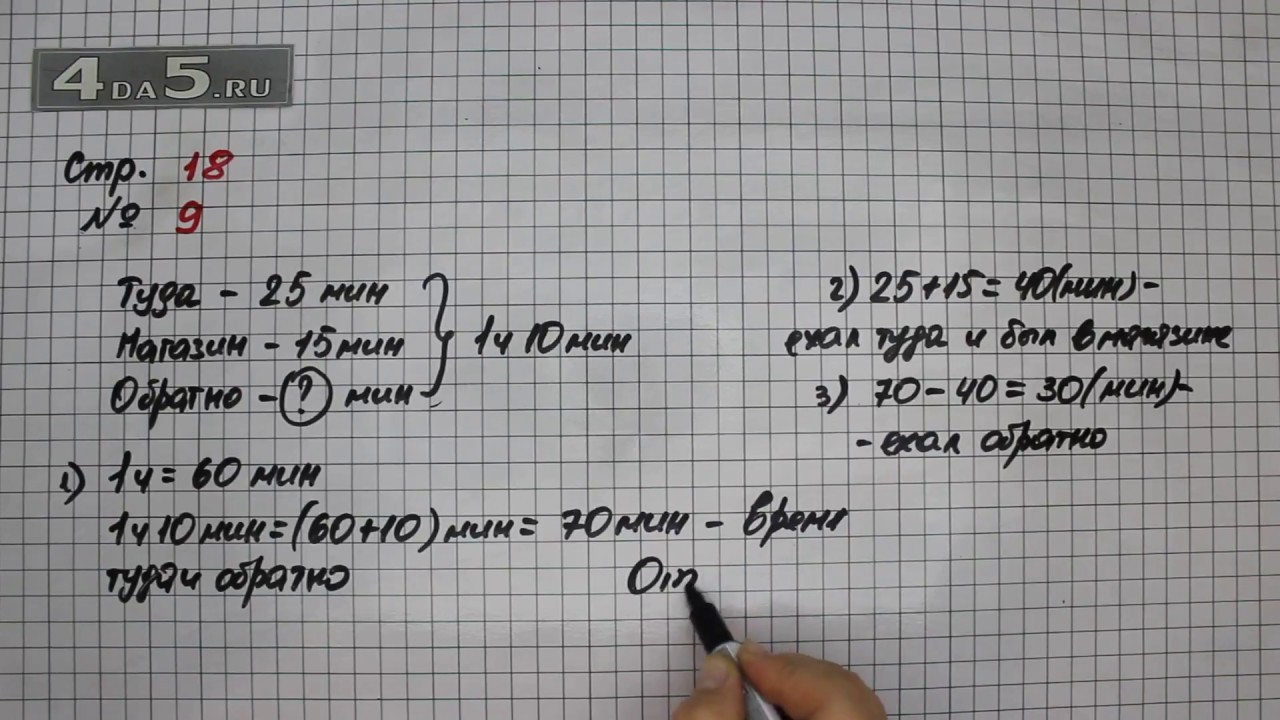 4DA5.RU
Стр. 18
№ 9
Туда - 25 мин
Магазин - 15 мин
Обратно - ? мин
1ч 10 мин
1) 1ч = 60 мин
1ч 10 мин = (60+10) мин = 70 мин - время
туда и обратно
2) 25+15 = 40 (мин) -
ехал туда и был в магазине
3) 70 - 40 = 30 (мин) -
- ехал обратно
От